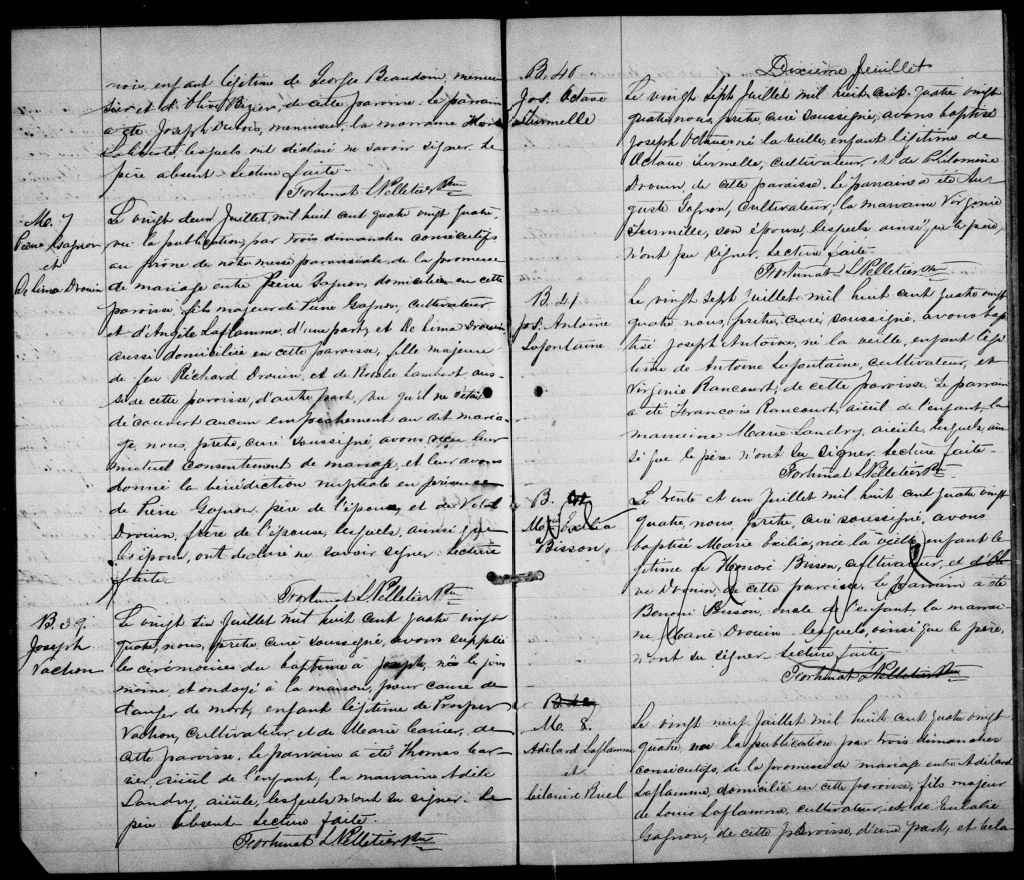 mois, enfant légitime de Georges Beaudoin, menui
sier et d'Olive Bizier, de cette paroisse. Le parrain
a été Joseph Dubois, menuisier, la marraine
lesquels ont déclaré ne savoir signer. Le
père absent. Lecture faite.
Fortunat L Pelletier Ptre
M. 7
Pierre Gagnon
et
Délima Drouin
Le vingt deux Juillet, mil huit cent quatre vingt quatre,
vu la publication, par trois dimanches consécutifs
au prône de notre messe paroissiale, de la promesse
de mariage entre Pierre Gagnon, domicilié en cette
paroisse, fils majeur de Pierre Gagnon, cultivateur
et d'Angèle Laflamme, d'une part, et De lima Drouin
aussi domiciliée en cette paroisse, fille majeure
de feu Richard Drouin, et de Rosalie Lambert aus-
si de cette paroisse, d'autre part, Vu qu'il ne s'était
découvert aucun empêchement au dit maria-
ge, nous, prêtre, curé soussigné avons reçu leur
mutuel consentement de mariage, et leur avons
donné la bénédiction nuptiale en présence
de Pierre Gagnon, père de l'époux, et de Vital
Drouin, frère de l'épouse, lesquels, ainsi que
les époux, ont déclaré ne savoir signer. Lecture
faite.
Fortunat L Pelletier Ptre
B. 39
Joseph
Vachon
Le vingt six Juillet mil huit cent quatre vingt
quatre, nous, prêtre, curé soussigné, avons supplée
les cérémonies du baptême à Joseph, né le jour
même, et ondoyé à la maison, pour cause de
danger de mort, enfant légitime de Prosper
Vachon, cultivateur, et de Marie Carrier, de
cette paroisse. Le parrain a été Thomas Car
rier, aïeul de l'enfant, la marraine Adèle
Landry, aïeule, lesquels n'ont su signer. Le
père absent. Lecture faite.
Fortunat L Pelletier Ptre
Dixième feuillet
B. 40
Jos. Octave
Turmelle
Le vingt sept Juillet mil huit cent quatre vingt
quatre nous, prêtre, curé soussigné, avons baptisé
Joseph Octave né la veille, enfant légitime de
Octave Turmelle, cultivateur, et de Philomène
Drouin, de cette paroisse. Le parrain a été Au
guste Gagnon, cultivateur, la marraine Virginie
Turmelle, son épouse, lesquels ainsi que le père,
n'ont pu signer. Lecture faite.
Fortunat L Pelletier Ptre
B. 41
Jos. Antoine
Lafontaine
Le vingt sept Juillet mil huit cent quatre vingt
quatre nous, prêtre, curé, soussigné, avons bap
tisé Joseph Antoine, né la veille, enfant légi
time de Antoine Lafontaine, cultivateur, et
Virginie Rancourt, de cette paroisse. Le parrain
a été François Rancourt, aïeul de l'enfant, la
marraine Marie Landry, aïeule, lesquels, ain
si que le père n'ont su signer. Lecture faite.
Fortunat L Pelletier Ptre
B.
M. Exilia
Bisson.
Le trente et un Juillet mil huit cent quatre vingt
quatre, nous, prêtre, curé soussigné, avons
baptisé Marie Exilia, née la veille, enfant lé
gitime de Honoré Bisson, cultivateur, et d'Oli
ve Drouin, de cette paroisse. Le parrain a été
Bisson, oncle de l'enfant, la marrai
ne Marie Drouin lesquels, ainsi que le père,
n'ont su signer. Lecture faite.
Fortunat L Pelletier Ptre
M. 8
Adélard Laflamme
et
Buel
Le vingt neuf Juillet mil huit cent quatre vingt
quatre, vu la publication par trois dimanches
consécutifs, de la promesse de mariage entre Adélard
Laflamme, domicilié en cette paroisse, fils majeur
de Louis Laflamme, cultivateur, et de Eulalie
Gagnon, de cette paroisse, d'une part, et